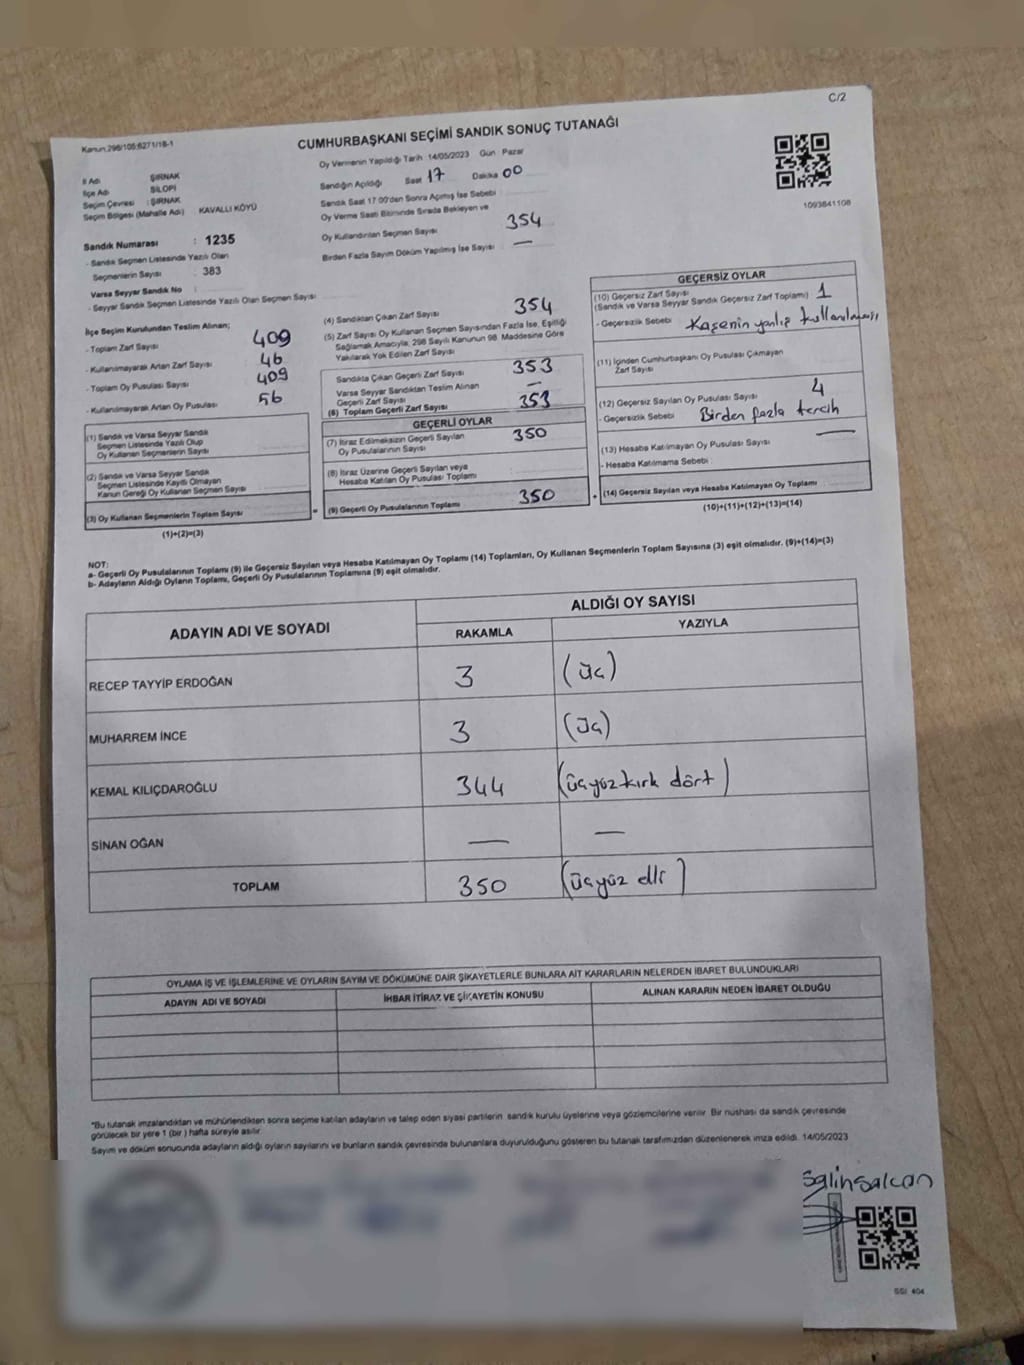 C/2
Kanun:298/105;6271/18-1
CUMHURBAŞKANI SEÇİMİ SANDIK SONUÇ TUTANAĞI
İl Adı : ŞIRNAK
İlçe Adı : SİLOPİ
Seçim Çevresi : ŞIRNAK
Seçim Bölgesi (Mahalle Adı) : KAVALLI KÖYÜ
Sandık Numarası : 1235
- Sandık Seçmen Listesinde Yazılı Olan
Seçmenlerin Sayısı : 383
Varsa Seyyar Sandık No :
- Seyyar Sandık Seçmen Listesinde Yazılı Olan Seçmen Sayısı :
Oy Vermenin Yapıldığı Tarih : 14/05/2023 Gün : Pazar
Sandığın Açıldığı Saat 17 Dakika 00
Sandık Saat 17.00'den Sonra Açılmış İse Sebebi :
Oy Verme Saati Bitiminde Sırada Bekleyen ve
Oy Kullandırılan Seçmen Sayısı : 354
Birden Fazla Sayım Döküm Yapılmış İse Sayısı : —
1093841108
İlçe Seçim Kurulundan Teslim Alınan;
- Toplam Zarf Sayısı : 409
- Kullanılmayarak Artan Zarf Sayısı : 46
- Toplam Oy Pusulası Sayısı : 409
- Kullanılmayarak Artan Oy Pusulası : 56
(1) Sandık ve Varsa Seyyar Sandık
Seçmen Listesinde Yazılı Olup
Oy Kullanan Seçmenlerin Sayısı :
(2) Sandık ve Varsa Seyyar Sandık
Seçmen Listesinde Kayıtlı Olmayan
Kanun Gereği Oy Kullanan Seçmen Sayısı :
(3) Oy Kullanan Seçmenlerin Toplam Sayısı :
(1)+(2)=(3)
(4) Sandıktan Çıkan Zarf Sayısı : 354
(5) Zarf Sayısı Oy Kullanan Seçmen Sayısından Fazla İse, Eşitliği
Sağlamak Amacıyla, 298 Sayılı Kanunun 98. Maddesine Göre
Yakılarak Yok Edilen Zarf Sayısı :
Sandıkta Çıkan Geçerli Zarf Sayısı : 353
Varsa Seyyar Sandıktan Teslim Alınan
Geçerli Zarf Sayısı : —
(6) Toplam Geçerli Zarf Sayısı : 353
GEÇERLİ OYLAR
(7) İtiraz Edilmeksizin Geçerli Sayılan
Oy Pusulalarının Sayısı : 350
(8) İtiraz Üzerine Geçerli Sayılan veya
Hesaba Katılan Oy Pusulası Toplamı :
= (9) Geçerli Oy Pusulalarının Toplamı : 350
GEÇERSİZ OYLAR
(10) Geçersiz Zarf Sayısı
(Sandık ve Varsa Seyyar Sandık Geçersiz Zarf Toplamı) : 1
- Geçersizlik Sebebi : Kaşenin yanlış kullanılmayışı
(11) İçinden Cumhurbaşkanı Oy Pusulası Çıkmayan
Zarf Sayısı :
(12) Geçersiz Sayılan Oy Pusulası Sayısı : 4
- Geçersizlik Sebebi : Birden fazla tercih
(13) Hesaba Katılmayan Oy Pusulası Sayısı : —
- Hesaba Katılmama Sebebi :
+ (14) Geçersiz Sayılan veya Hesaba Katılmayan Oy Toplamı :
(10)+(11)+(12)+(13)=(14)
NOT:
a- Geçerli Oy Pusulalarının Toplamı (9) ile Geçersiz Sayılan veya Hesaba Katılmayan Oy Toplamı (14) Toplamları, Oy Kullanan Seçmenlerin Toplam Sayısına (3) eşit olmalıdır. (9)+(14)=(3)
b- Adayların Aldığı Oyların Toplamı, Geçerli Oy Pusulalarının Toplamına (9) eşit olmalıdır.
ADAYIN ADI VE SOYADI ALDIĞI OY SAYISI
RAKAMLA YAZIYLA
RECEP TAYYİP ERDOĞAN 3 (üç)
MUHARREM İNCE 3 (üç)
KEMAL KILIÇDAROĞLU 344 (üçyüzkırk dört)
SİNAN OĞAN — —
TOPLAM 350 (üçyüz elli)
OYLAMA İŞ VE İŞLEMLERİNE VE OYLARIN SAYIM VE DÖKÜMÜNE DAİR ŞİKAYETLERLE BUNLARA AİT KARARLARIN NELERDEN İBARET BULUNDUKLARI
ADAYIN ADI VE SOYADI İHBAR İTİRAZ VE ŞİKAYETİN KONUSU ALINAN KARARIN NEDEN İBARET OLDUĞU
*Bu tutanak imzalandıktan ve mühürlendikten sonra seçime katılan adayların ve talep eden siyasi partilerin sandık kurulu üyelerine veya gözlemcilerine verilir. Bir nüshası da sandık çevresinde
görülecek bir yere 1 (bir) hafta süreyle asılır.
Sayım ve döküm sonucunda adayların aldığı oyların sayılarını ve bunların sandık çevresinde bulunanlara duyurulduğunu gösteren bu tutanak tarafımızdan düzenlenerek imza edildi. 14/05/2023
SSI 404